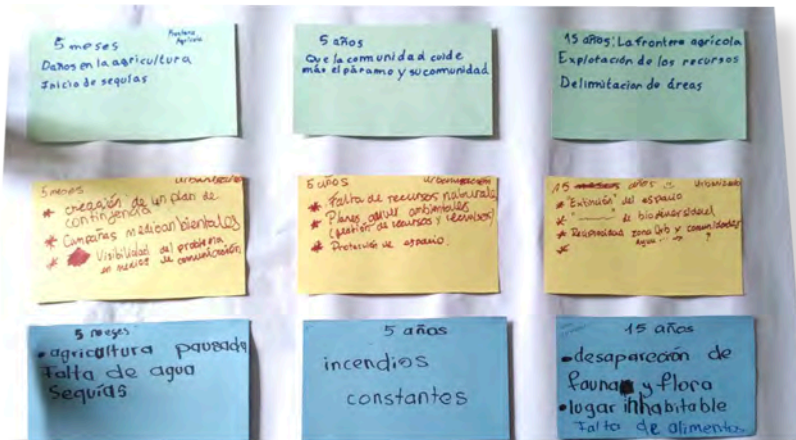 5 meses Frontera Agrícola
Daños en la agricultura
Inicio de sequías
5 años
Que la comunidad cuide
más el páramo y su comunidad
15 años: La frontera agrícola
Explotación de los recursos
Delimitacion de áreas
5 meses
* creación de un plan de
contingencia
* Campañas medioambientales
* Visibilidad del problema
en medios de comunicación
5 años
* Falta de recursos naturales
* Planes ambientales
(gestión de recursos y
* Protección de espacio.
15 años
* "Extinción" del espacio
* de biodiversidad
* zona y comunidades
agua ?
*
5 meses
• agricultura pausada
Falta de agua
Sequías
5 años
incendios
constantes
15 años
• desapareción de
fauna y flora
• lugar inhabitable
Falta de alimentos